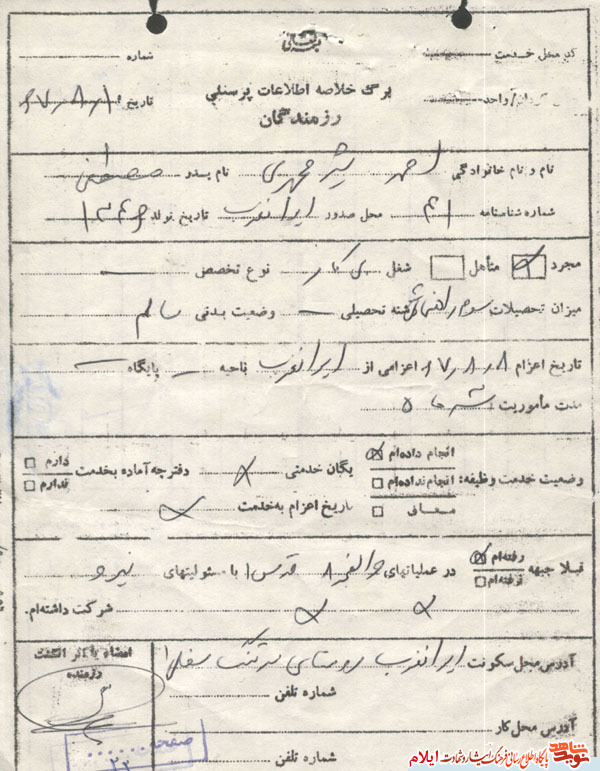 بسمه تعالی
کد محل خدمت
شماره
گردان/واحد
برگ خلاصه اطلاعات پرسنلی
رزمندگان
تاریخ
نام و نام خانوادگی احمد شیرمحمدی نام پدر مصطفی
شماره شناسنامه ۴۱ محل صدور ایوانغرب تاریخ تولد ۱۳۴۶
مجرد متأهل شغل بی کار نوع تخصص
میزان تحصیلات سوم راهنمائی رشته تحصیلی وضعیت بدنی سالم
تاریخ اعزام ۶۷٫۸٫۸ اعزامی از ایوانغرب ناحیه پایگاه
مدت مأموریت
وضعیت خدمت وظیفه: انجام داده‌ام یگان خدمتی دفترچه آماده بخدمت دارم
انجام نداده‌ام ندارم
معاف تاریخ اعزام به‌خدمت
قبلا جبهه رفته‌ام در عملیاتهای والفجر ۸ قدس ۱ با مسئولیتهای نیرو
نرفته‌ام
شرکت داشته‌ام.
آدرس محل سکونت ایوانغرب روستای سرتنگ سفلی
شماره تلفن
آدرس محل کار
شماره تلفن
امضاء یا اثر انگشت
رزمنده
صفحه
۲۲
نوید شاهد
پایگاه اطلاع رسانی فرهنگ ایثار و شهادت ایلام